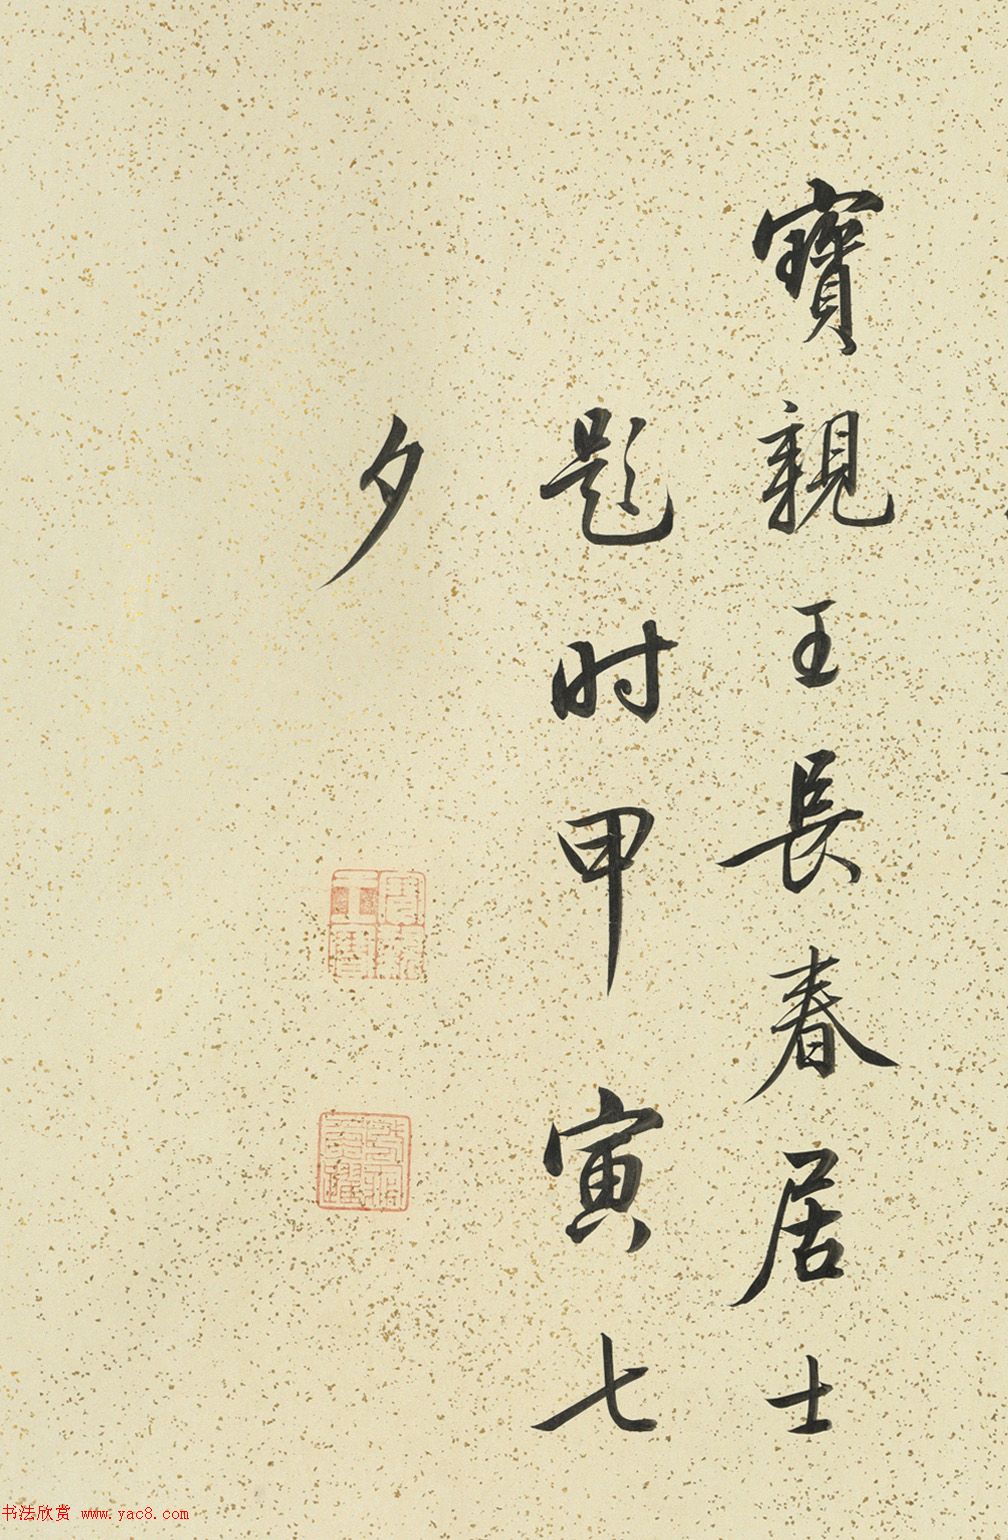 寶親王長春居士
題时甲寅七
夕
寶親王寶
书法欣赏 www.yac8.com